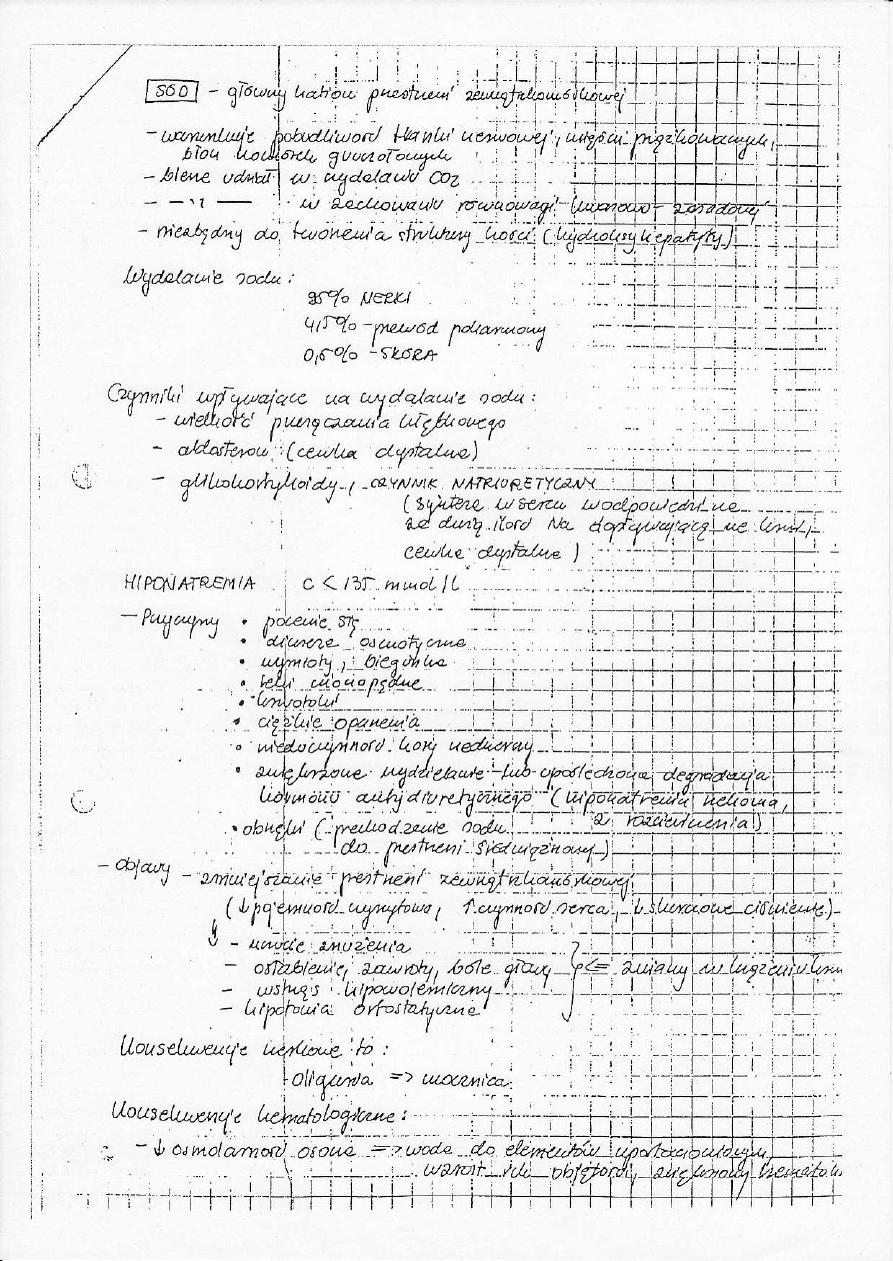 SÓD – główny kation przestrzeni zewnątrzkomórkowej
– warunkuje pobudliwość tkanki nerwowej, mięśni prążkowanych,
błon komórek gruczołowych
– bierze udział w wydalaniu CO2
– –"– w zachowaniu równowagi kwasowo-zasadowej
– niezbędny do tworzenia struktury kości (hydroksyhepatyty)
Wydalanie sodu:
95% NERKI
4,5% – przewód pokarmowy
0,5% – SKÓRA
Czynniki wpływające na wydalanie sodu:
– wielkość przesączania kłębkowego
– aldosteron (cewka dystalna)
– glikokortykoidy, CZYNNIK NATRIURETYCZNY
(synteza w sercu w odpowiedzi na
za dużą ilość Na dopływającą na
cewka dystalna)
HIPONATREMIA c < 135 mmol/L
– Przyczyny • pocenie się
• diureza osmotyczna
• wymioty, biegunka
• leki moczopędne
• krwotoki
• ciężkie oparzenia
• niedoczynność kory nadnerczy
• zwiększone wydzielanie lub upośledzona degradacja
hormonu antydiuretycznego (hiponatremia rzekoma,
z rozcieńczenia)
• obrzęki (przechodzenie sodu
do przestrzeni śródmiąższowej)
– objawy – zmniejszanie przestrzeni zewnątrzkomórkowej
(↓ pojemność wyrzutowa, ↑ czynność serca, ↓ skurczowe ciśnienie)
↓ – uczucie znużenia
– osłabienie, zawroty, bóle głowy } <= zmiany w krążeniu krwi
– wstrząs hipowolemiczny
– hipotonia ortostatyczna
Konsekwencje nerkowe to:
oliguria => mocznica
Konsekwencje hematologiczne:
– ↓ osmolarność osocza => woda do elementów upostaciowanych,
wzrost ich objętości, zwiększony hematok